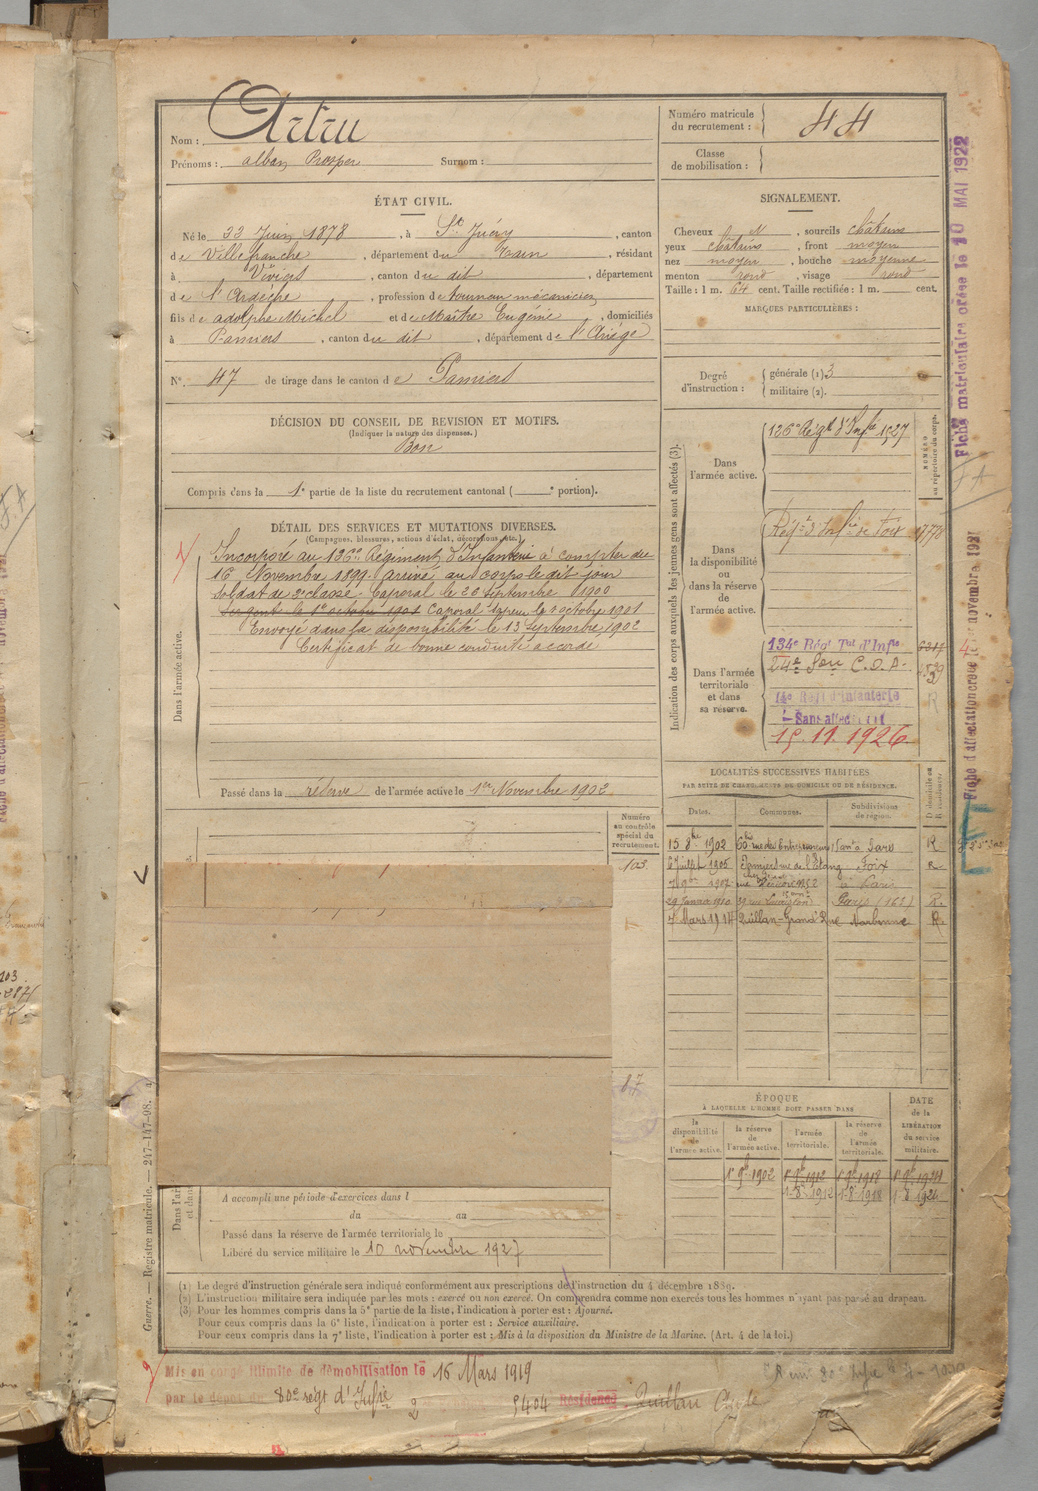 Nom : Artru
Prénoms : Alban Prosper Surnom :
Numéro matricule du recrutement : 44
Classe de mobilisation :
ÉTAT CIVIL.
Né le 22 Juin 1878, à St Juéry, canton
de Villefranche, département du Tarn, résidant
à Viviers, canton du dit, département
de l'Ardèche, profession de tourneur mécanicien
fils de Adolphe Michel et de Maître Eugénie, domiciliés
à Pamiers, canton du dit, département de l'Ariège
N° 47 de tirage dans le canton de Pamiers
DÉCISION DU CONSEIL DE REVISION ET MOTIFS.
(Indiquer la nature des dispenses.)
Bon
Compris dans la 1e partie de la liste du recrutement cantonal ( e portion).
DÉTAIL DES SERVICES ET MUTATIONS DIVERSES.
(Campagnes, blessures, actions d'éclat, décorations, etc.)
Dans l'armée active.
Incorporé au 126e Régiment d'Infanterie à compter du
16 Novembre 1899. Arrivé au corps le dit jour
soldat de 2e classe. Caporal le 20 Septembre 1900
Sergent le 1er octobre 1901 Caporal le octobre 1901
Envoyé dans la disponibilité le 13 Septembre 1902
Certificat de bonne conduite accordé
Passé dans la réserve de l'armée active le 1er Novembre 1902
Numéro au contrôle spécial du recrutement.
103
17
A accompli une période d'exercices dans l
du au
Passé dans la réserve de l'armée territoriale le
Libéré du service militaire le 10 novembre 1927
SIGNALEMENT.
Cheveux N, sourcils châtains
yeux châtains, front moyen
nez moyen, bouche moyenne
menton rond, visage rond
Taille : 1 m. 64 cent. Taille rectifiée : 1 m. cent.
MARQUES PARTICULIÈRES :
Degré d'instruction : générale (1) 3
militaire (2).
Indication des corps auxquels les jeunes gens sont affectés (3).
NUMÉRO au répertoire du corps.
Dans l'armée active.
126e Régt d'Infie 1527
Dans la disponibilité ou dans la réserve de l'armée active.
Régt d'Infie de Foix
Dans l'armée territoriale et dans sa réserve.
134e Régt Tal d'Infie
Son C.O.A.
14e Regt d'Infanterie
Sans affect
15.11.1926
LOCALITÉS SUCCESSIVES HABITÉES
PAR SUITE DE CHANGEMENTS DE DOMICILE OU DE RÉSIDENCE.
Dates. Communes. Subdivisions de région. D domicile ou R résidence.
15 8bre 1902
6 Juillet 1905 Pamiers rue de l'Etang Foix R
1907
29 Janvier 1910
7 Mars 1914 Quillan Grand'Rue Narbonne R
ÉPOQUE
À LAQUELLE L'HOMME DOIT PASSER DANS
DATE de la LIBÉRATION du service militaire.
la disponibilité de l'armée active. la réserve de l'armée active. l'armée territoriale. la réserve de l'armée territoriale.
1er 9bre 1902 1er 9bre 1912 1er 9bre 1918
1-8 1912 1-8 1918 1-8 1924
(1) Le degré d'instruction générale sera indiqué conformément aux prescriptions de l'instruction du 4 décembre 1889.
(2) L'instruction militaire sera indiquée par les mots : exercé ou non exercé. On comprendra comme non exercés tous les hommes n'ayant pas passé au drapeau.
(3) Pour les hommes compris dans la 5e partie de la liste, l'indication à porter est : Ajourné.
Pour ceux compris dans la 6e liste, l'indication à porter est : Service auxiliaire.
Pour ceux compris dans la 7e liste, l'indication à porter est : Mis à la disposition du Ministre de la Marine. (Art. 4 de la loi.)
Guerre. — Registre matricule. — 247-147-98.
Mis en congé illimité de démobilisation le 16 Mars 1919
par le dépôt du 80e régt d'Infie 5404 Résidence Quillan
Fiche matriculaire créée le 10 MAI 1922
Fiche d'affectation créée le novembre 1921